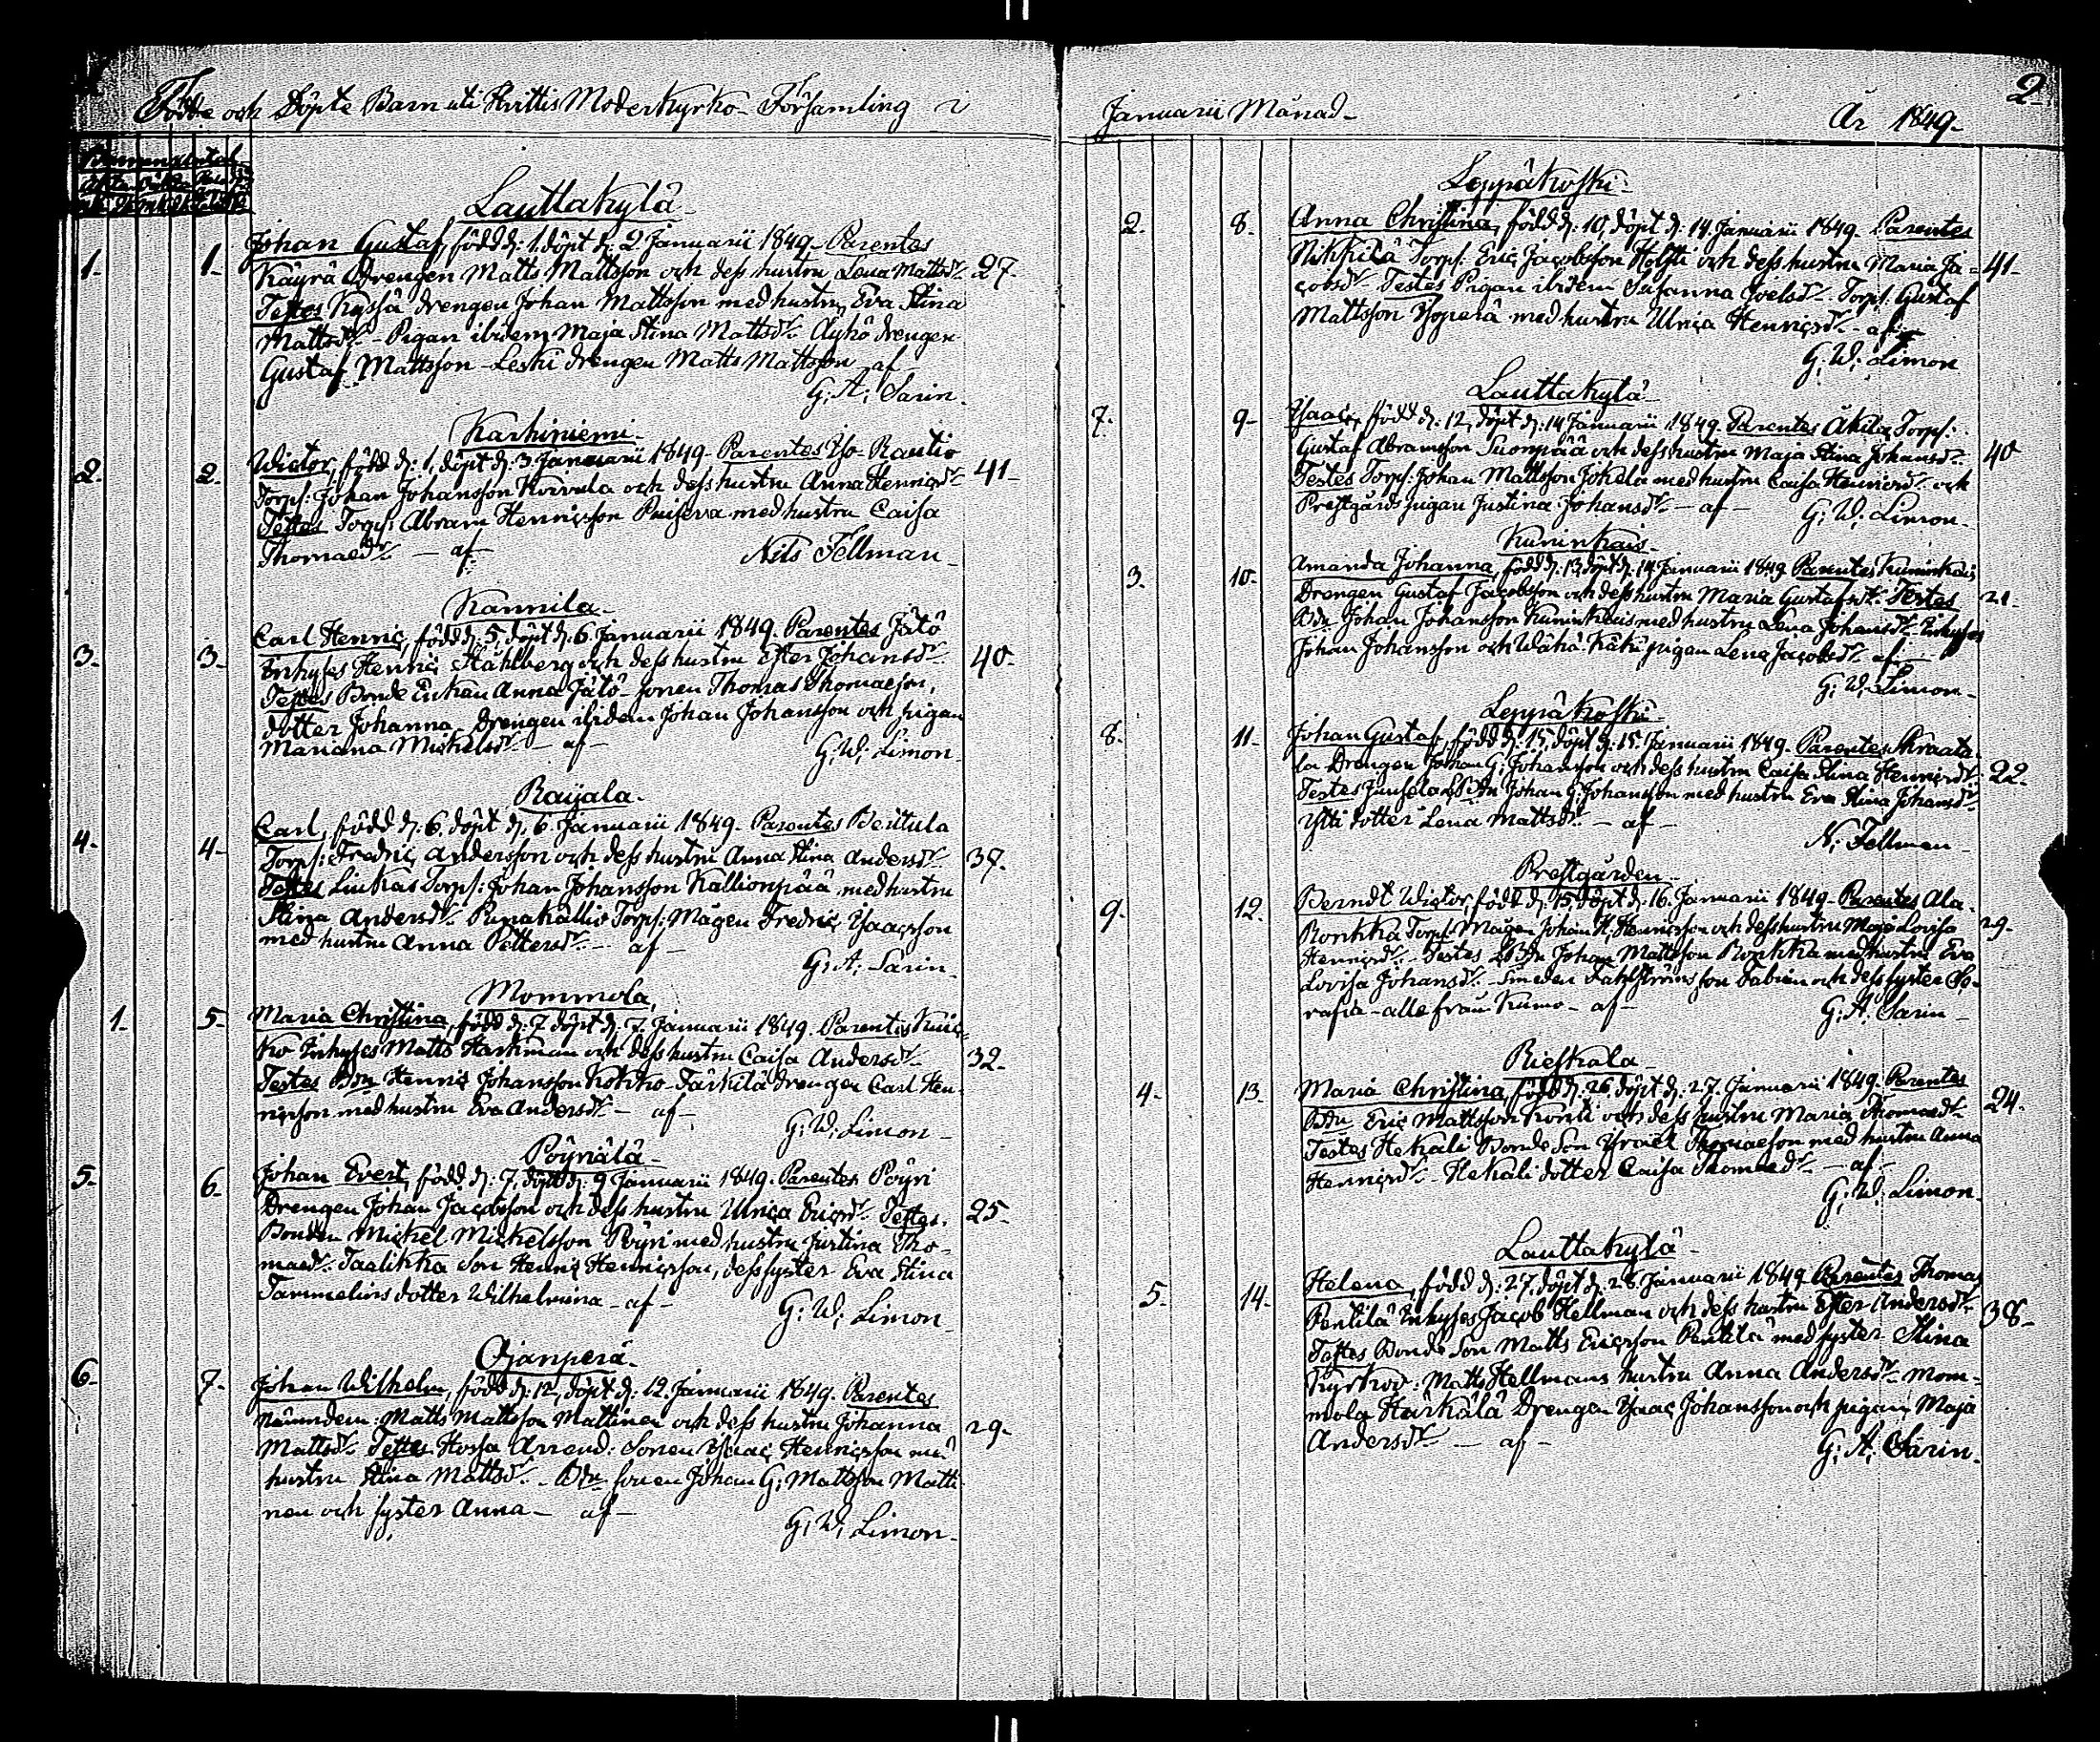 Födde och Döpte Barn uti Hvittis Moderkyrko-Församling i
Lauttakylä
1. 1. Johan Gustaf, född d: 1, döpt d: 2 Januarii 1849 - Parentes
Käyrä Drengen Matts Mattsson och dess hustru Lena Mattsdr 27.
Testes Kyssä drengen Johan Mattsson med hustru Eva Stina
Mattsdr - Pigan ibidem Maja Stina Mattsdr - Äyhö drengen
Gustaf Mattsson - Leski drengen Matts Mattsson - af -
G: A: Sarin.
Karhiniemi -
2. 2. Wictor, född d: 1, döpt d: 3 Januarii 1849 - Parentes Yso-Rautio
Torp: Johan Johansson Korvula och dess hustru Anna Henricsdr 41.
Testes Torp: Abram Henricsson Puiseva med hustru Caisa
Thomaedr - af - Nils Fellman -
Kannila -
3. 3. Carl Henric, född d: 5, döpt d: 6 Januarii 1849. Parentes Jätö
Inhyses Henric Ståhlberg och dess hustru Ester Johansdr 40.
Testes Bonde Enkan Anna Jätö - sonen Thomas Thomaeson,
dotter Johanna - Drengen ibidem Johan Johansson och pigan
Mariana Mickelsdr - af - G: W: Limon
Raijala -
4. 4. Carl, född d: 6, döpt d: 6 Januarii 1849 - Parentes Perttula
Torp: Fredric Andersson och dess hustru Anna Stina Andersdr 37.
Testes Liukas Torp: Johan Johansson Kallionpää med hustru
Stina Andersdr - Punakallio Torp: Mågen Fredric Ysaacsson
med hustru Anna Pettersdr - af -
G: A: Sarin.
Mommola,
1. 5. Maria Christina, född d: 7 döpt d: 7 Januarii 1849. Parentes
Inhyses Matts Harkman och dess hustru Caisa Andersdr 32.
Testes Bdn Henric Johansson Kokko - Tärkilä drengen Carl Hen-
ricsson med hustru Eva Andersdr - af -
G: W: Limon -
Pöyriälä -
5. 6. Johan Evert, född d: 7, döpt d: 9 Januarii 1849. Parentes Pöyri
Drengen Johan Jacobsson och dess hustru Ulrica Ericsdr Testes. 25.
Bonden Mickel Mickelsson Pöyri med hustru Justina Tho-
maedr. Taalikka Son Henric Henricsson, dess syster Eva Stina
Tammelins dotter Wilhelmina - af - G: W: Limon
Ojanperä -
6. 7. Johan Wilhelm, född d: 12, döpt d: 12 Januarii 1849. Parentes
Nämndem: Matts Mattsson Mattinen och dess hustru Johanna 29.
Mattsdr. Testes Hossa Arrend: Sonen Ysaac Henricsson med
hustru Stina Mattsdr - Bdn sonen Johan G: Mattsson Matti-
nen och syster Anna - af -
G: W: Limon -
2.
Januarii Månad - År 1849 -
Leppäkoski -
2. 8. Anna Christina, född d: 10, döpt d: 14 Januarii 1849 - Parentes
Nikkilä Torp: Eric Jacobsson Holsti och dess hustru Maria Ja- 41.
cobsdr - Testes Pigan ibidem Susanna Joelsdr - Torp: Gustaf
Mattsson med hustru Ulrica Henricsdr - af -
G: W: Limon
Lauttakylä -
7. 9. Ysaac, född d: 12, döpt d: 14 Januarii 1849. Parentes Äkila Torp:
Gustaf Abramsson Suonpää och dess hustru Maja Stina Johansdr 40
Testes Torp: Johan Mattsson Jokela med hustru Caisa Henricsdr och
Prestgårds pigan Justina Johansdr - af - G: W: Limon -
Kuninkais -
3. 10. Amanda Johanna, född d: 13, döpt d: 14 Januarii 1849 Parentes Kuninkais
Drengen Gustaf Jacobsson och dess hustru Maria Gustafsdr. Testes 21.
Bdn Johan Johansson Kuninkais med hustru Lena Johansdr - Inhyses
Johan Johansson och Wähä-Käki pigan Lena Jacobsdr - af -
G: W: Limon -
Leppäkoski -
8. 11. Johan Gustaf, född d: 15, döpt d: 15 Januarii 1849 - Parentes
la Drengen Johan G: Johansson och dess hustru Caisa Stina Henricsdr 22.
Testes Bdn Johan G: Johansson med hustru Eva Stina Johansdr
Ytti dotter Lena Mattsdr - af -
N: Fellman -
Prestgården -
9. 12. Berndt Wictor, född d: 15, döpt d: 16 Januarii 1849 - Parentes Ala-
Ronkka Torp: Mågen Johan H: Henricsson och dess hustru Maja Lovisa 29.
Henricsdr - Testes Bdn Johan Mattsson Ronkka med hustru Eva
Lovisa Johansdr - Smeden Fahlströms son Fabian och dess syster Se-
rafia - alle från Kumo - af -
G: A: Sarin -
Rieskala
4. 13. Maria Christina, född d: 26, döpt d: 27 Januarii 1849. Parentes
Bdn Eric Mattsson Kortti och dess hustru Maria Thomaedr 24.
Testes Hekali Bonde Son Ysrael Thomaeson med hustru Anna
Henricsdr - Hekali dotter Caisa Thomaedr - af -
G: W: Limon
Lauttakylä -
5. 14. Helena, född d: 27, döpt d: 28 Januarii 1849 Parentes Thomas
Pentilä Inhyses Jacob Hellman och dess hustru Ester Andersdr 38.
Testes Bonde Son Matts Ericsson Pentilä med syster Stina
Kyrkov: Matts Hellmans hustru Anna Andersdr - Mom-
mola Härkälä Drengen Ysaac Johansson och pigan Maja
Andersdr - af - G: A: Sarin.